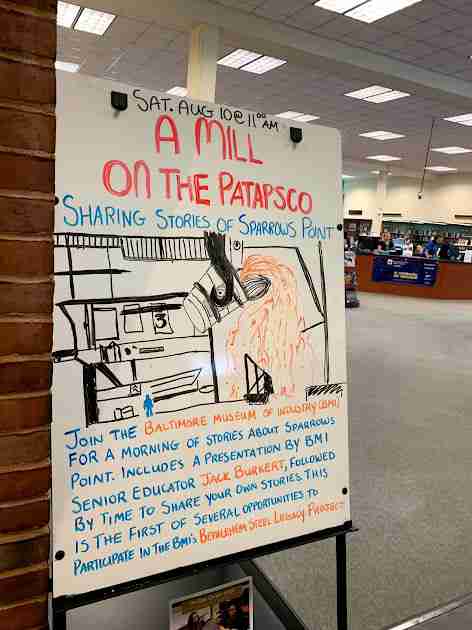 SAT. AUG 10 @ 11:00 AM
A MILL
ON THE PATAPSCO
SHARING STORIES OF SPARROWS POINT
3
JOIN THE BALTIMORE MUSEUM OF INDUSTRY (BMI)
FOR A MORNING OF STORIES ABOUT SPARROWS
POINT. INCLUDES A PRESENTATION BY BMI
SENIOR EDUCATOR JACK BURKERT, FOLLOWED
BY TIME TO SHARE YOUR OWN STORIES. THIS
IS THE FIRST OF SEVERAL OPPORTUNITIES TO
PARTICIPATE IN THE BMI'S BETHLEHEM STEEL LEGACY PROJECT